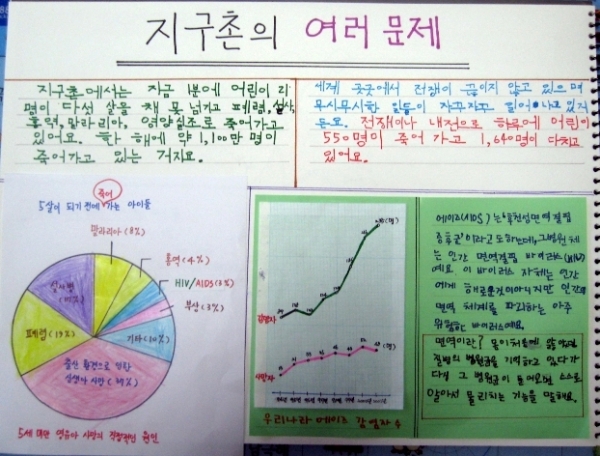 지구촌의 여러 문제
지구촌에서는 지금 1분에 어린이 21
명이 다섯 살을 채 못 넘기고 폐렴, 설사,
홍역, 말라리아, 영양실조로 죽어가고
있어요. 한 해에 약 1,100만 명이
죽어가고 있는 거지요.
세계 곳곳에서 전쟁이 끊이지 않고 있으며
무시무시한 일들이 자꾸자꾸 일어나고 있거
든요. 전쟁이나 내전으로 하루에 어린이
550명이 죽어 가고 1,640명이 다치고
있어요.
죽어
5살이 되기 전에 가는 아이들
말라리아 (8%)
홍역 (4%)
HIV/AIDS (3%)
부상 (3%)
기타 (10%)
설사병
폐렴 (19%)
출산 환경으로 인한
신생아 사망
5세 미만 영유아 사망의 직접적인 원인
감염자
사망자
(명)
(명)
우리나라 에이즈 감염자 수
에이즈(AIDS)는 '후천성 면역 결핍
증후군'이라고도 하는데, 그 병원체
는 인간 면역결핍 바이러스(HIV)
예요. 이 바이러스 자체는 인간
에게 해로운 것이 아니지만 인간의
면역 체계를 파괴하는 아주
위험한 바이러스예요.
면역이란? 몸이 처음에 앓았던
질병의 병원균을 기억하고 있다가
다시 그 병원균이 들어오면 스스로
알아서 물리치는 기능을 말해요.